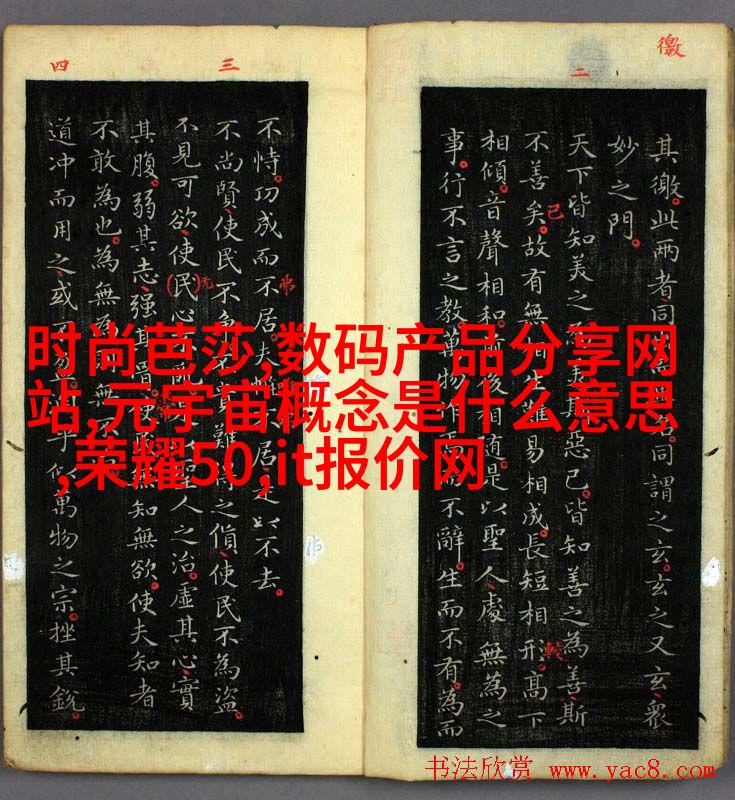 時尚芭莎,数码产品分享网
站,元宇宙概念是什么意思
,荣耀50,it报价网
徼
二
其徼。此兩者同名。同謂之玄。玄之又玄。衆
妙之門。
天下皆知美之為美斯惡已。皆知善之為善斯
不善矣。故有無相生難易相成。長短相形。高下
相傾。音聲相和。前後相随。是以聖人處無為之
事。行不言之教。萬物作而不辭。生而不有。為而
已
三
四
不恃。功成而不居。夫居是以不去。
不尚賢。使民不難得之貨。使民不為盜。
不見可欲。使民心人之治。虛其心。實
其腹。弱其志。强其骨。使無知無欲。使夫知者
不敢為也。為無為無不
道冲而用之。或不乎似萬物之宗。挫其銳。
书法欣赏 www.yac8.com